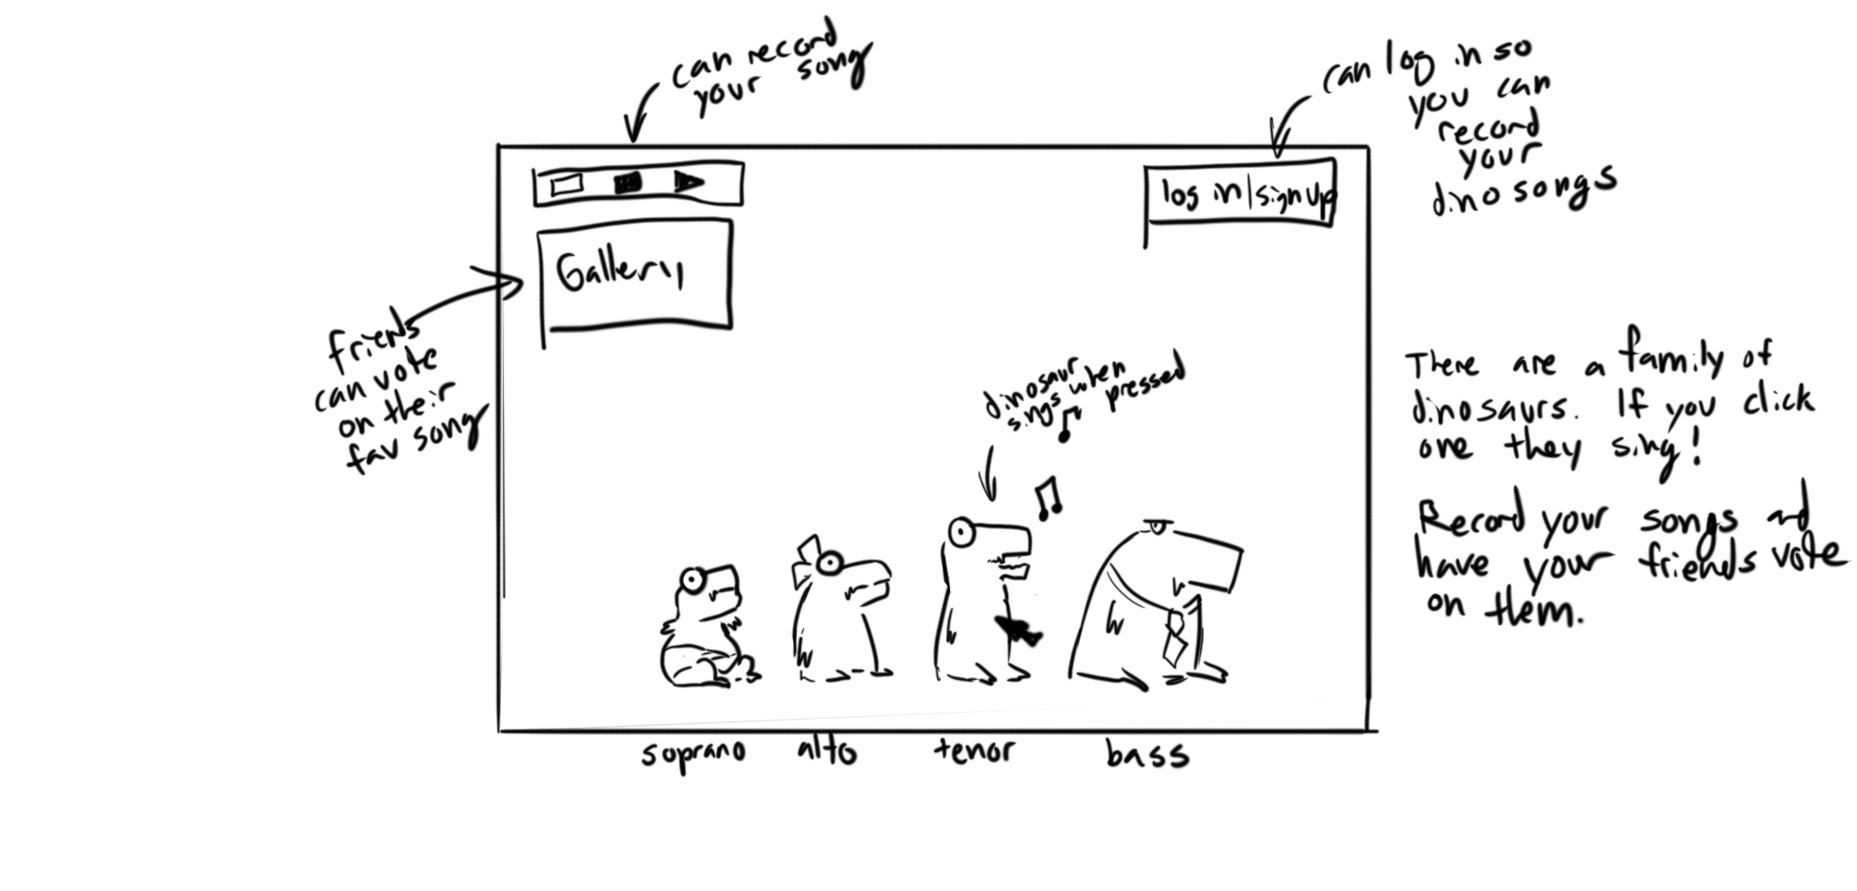 can record
your song
can log in so
you can
record
your
dino songs
log in|sign up
Gallery
friends
can vote
on their
fav song
dinosaur
sings when
pressed
There are a family of
dinosaurs. If you click
one they sing!
Record your songs and
have your friends vote
on them.
soprano alto tenor bass